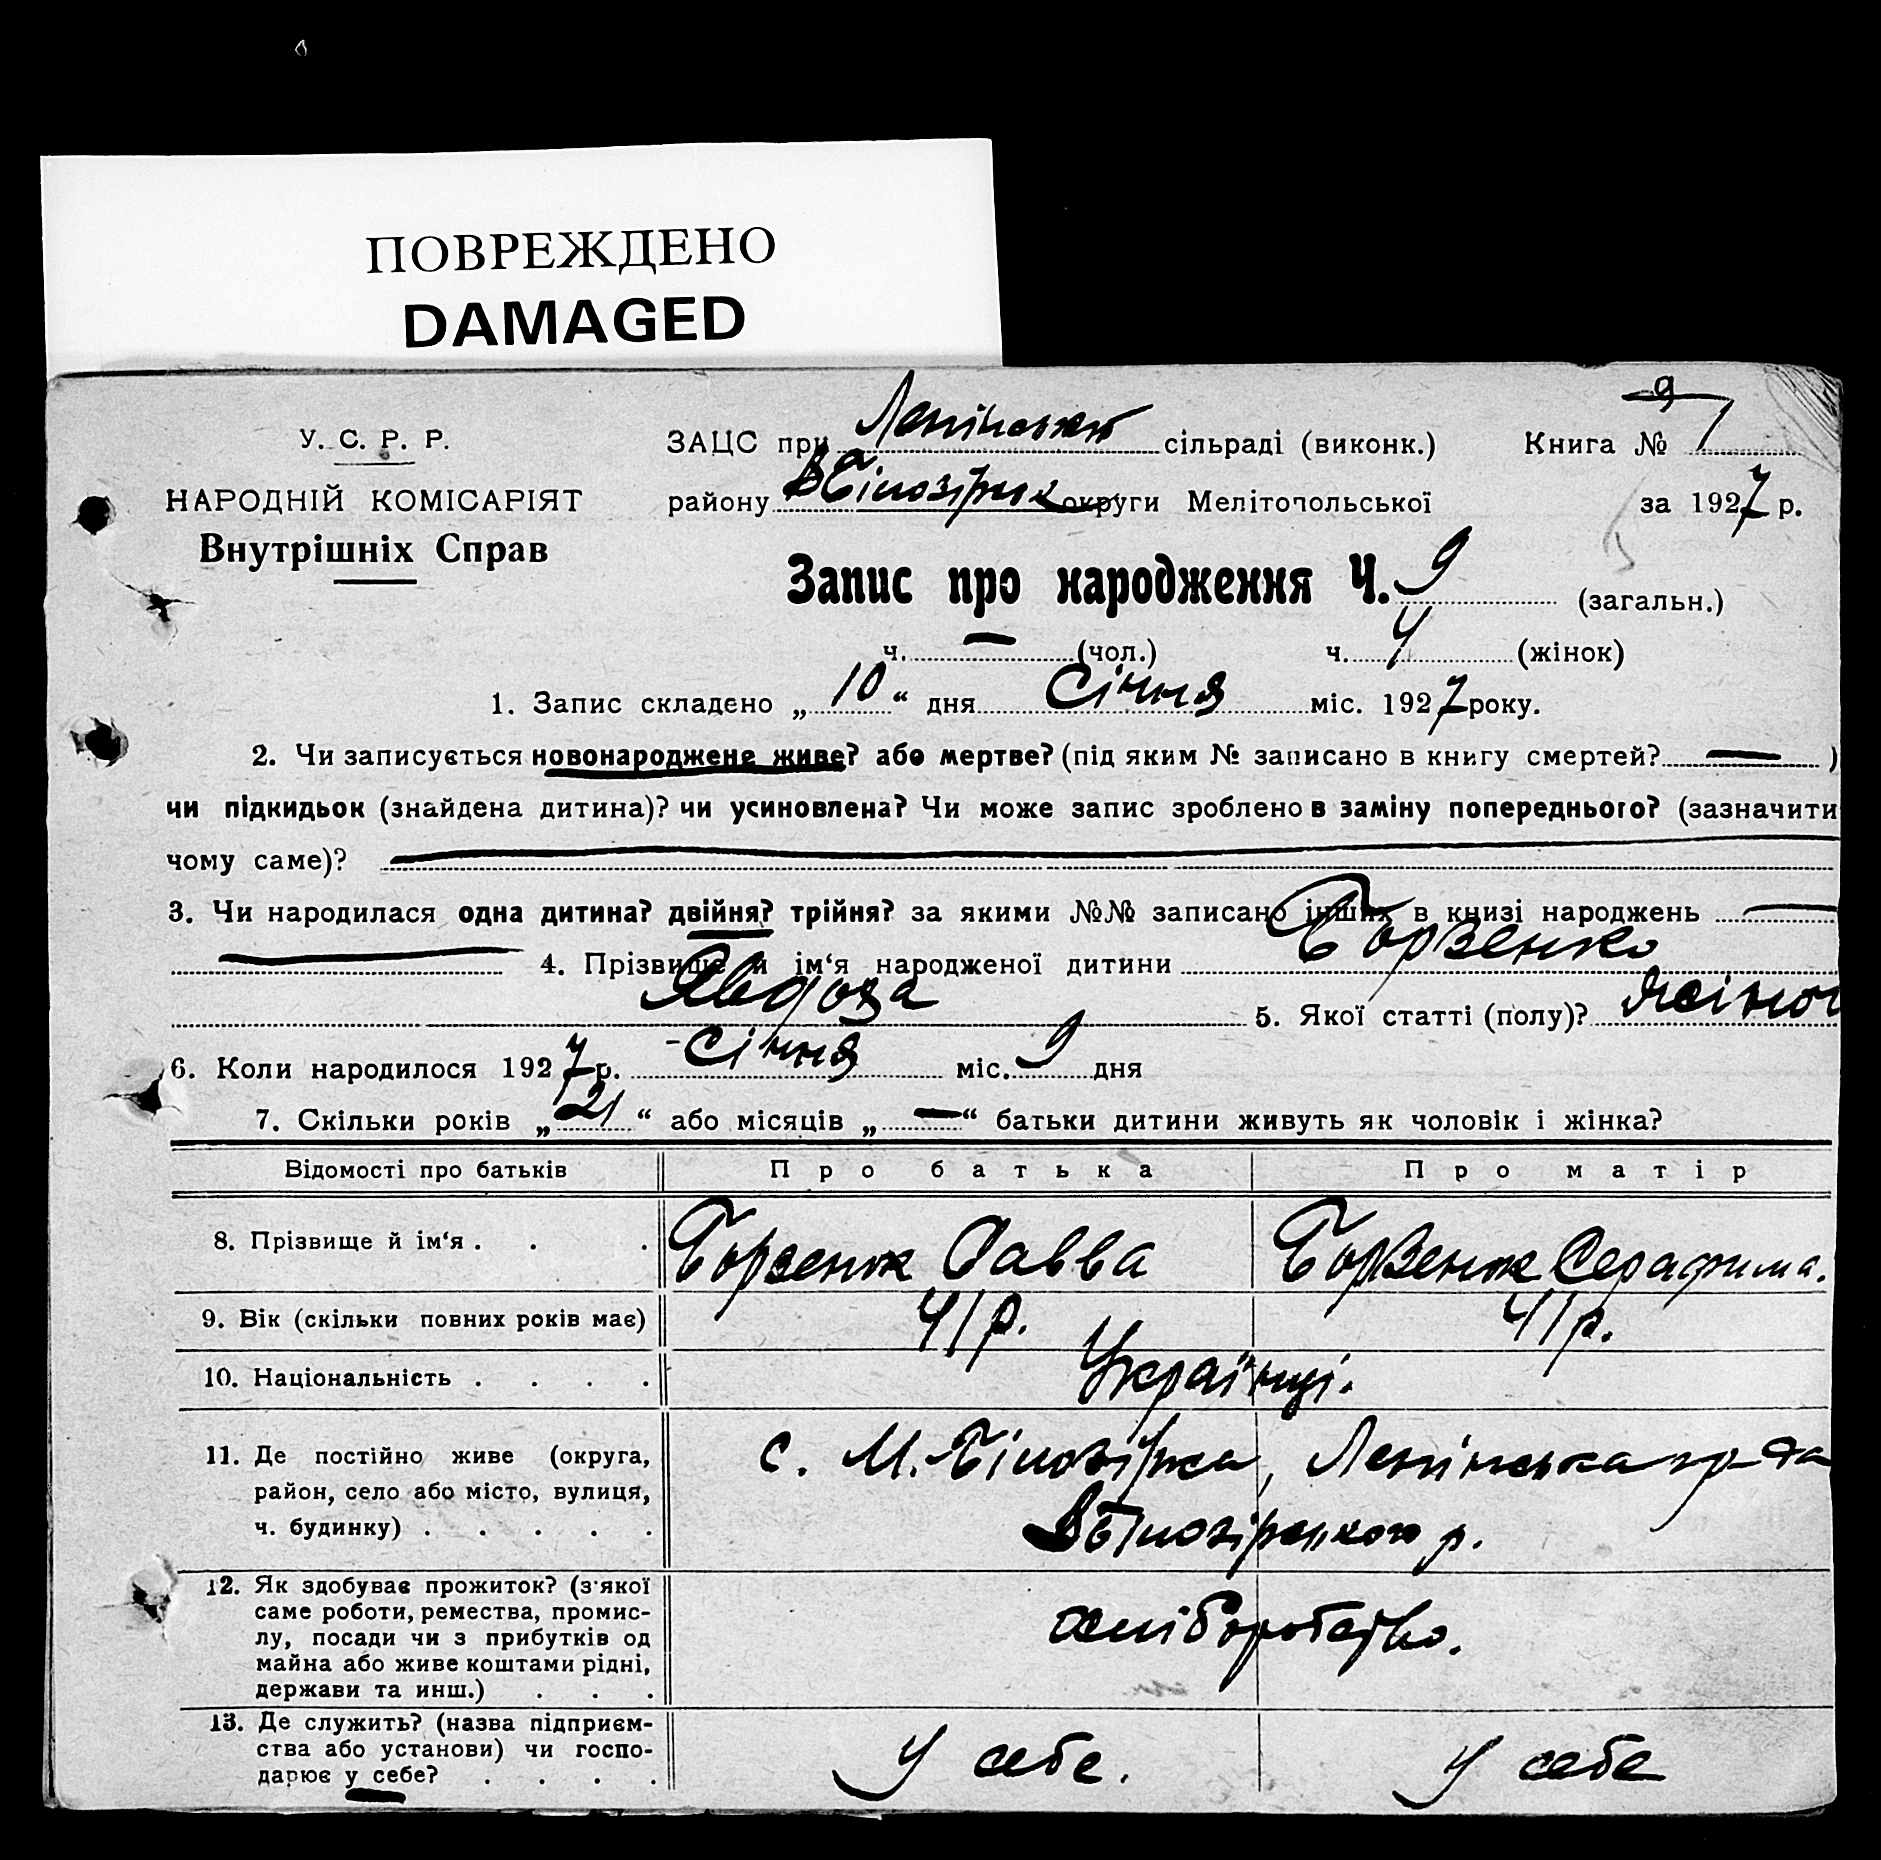 ПОВРЕЖДЕНО
DAMAGED
9
У. С. Р. Р. ЗАЦС при Ленінській сільраді (виконк.) Книга № 1
НАРОДНІЙ КОМІСАРІЯТ району ВБілозірськ округи Мелітопольської за 1927 р.
Внутрішніх Справ
Запис про народження Ч. 9 (загальн.)
ч. — (чол.) ч. 4 (жінок)
1. Запис складено „ 10 “ дня Січня міс. 1927 року.
2. Чи записується новонароджене живе? або мертве? (під яким № записано в книгу смертей? — )
чи підкидьок (знайдена дитина)? чи усиновлена? Чи може запис зроблено в заміну попереднього? (зазначити
чому саме)? —
3. Чи народилася одна дитина? двійня? трійня? за якими №№ записано інших в книзі народжень —
— 4. Прізвище й ім‘я народженої дитини Борзенко
Явдоха 5. Якої статті (полу)? жіноч
6. Коли народилося 1927 р. Січня міс. 9 дня
7. Скільки років „ 21 “ або місяців „ — “ батьки дитини живуть як чоловік і жінка?
Відомості про батьків Про батька Про матір
8. Прізвище й ім‘я . . . Борзенко Савва Борзенко Серафима.
9. Вік (скільки повних років має) 41 р. 41 р.
10. Національність . . . . Українці.
11. Де постійно живе (округа, с. М. Білозірка, Ленінська
район, село або місто, вулиця,
ч. будинку) . . . . . ВБілозірського р.
12. Як здобуває прожиток? (з‘якої
саме роботи, ремества, промис-
лу, посади чи з прибутків од хліборобство.
майна або живе коштами рідні,
держави та инш.) . . .
13. Де служить? (назва підприєм-
ства або установи) чи госпо- У себе. У себе
дарює у себе? . . . .